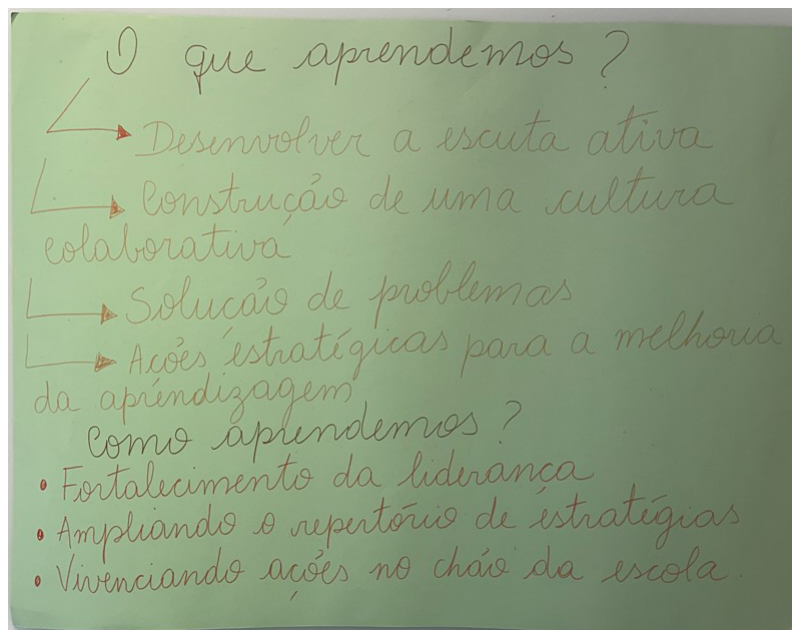 O que aprendemos?
Desenvolver a escuta ativa
Construção de uma cultura
colaborativa
Solução de problemas
Ações estratégicas para a melhoria
da aprendizagem
Como aprendemos?
• Fortalecimento da liderança
• Ampliando o repertório de estratégias
• Vivenciando ações no chão da escola.